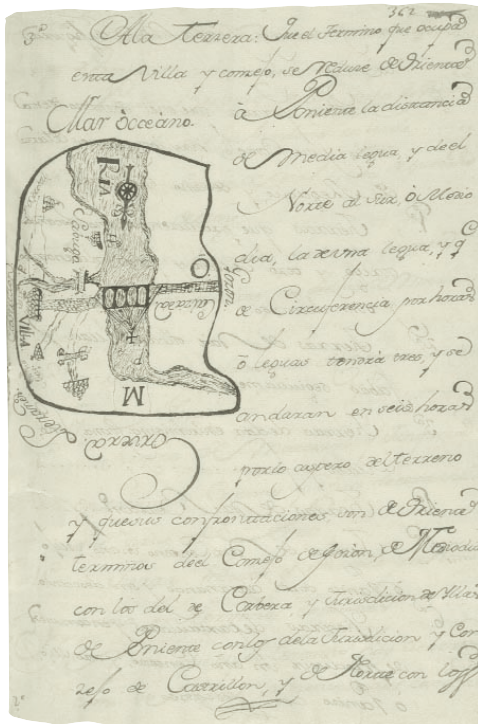 362
3ª A la tersera: Que el Termino que ocupa
enta Villa y consejo, se reduse de Oriente
Mar òcceáno.
à Poniente la distancia
de Media legua, y de el
Norte al Sur, ò Medio
dia, la de una legua, y q
de Circuferencia por horas
ò leguas tendrà tres, y se
andaran en seis horas
por lo aspero del terreno
RIA
O
P
M
Carrera
Villa
y que sus confrontaciones, son de Oriente
terminos de el Consejo de Gozon, de Mediodia
con los del de Corbera y Jurisdicion de Illas
de Poniente con los de la Jurisdicion y Con
sejo de Castrillon, y de Norte con los